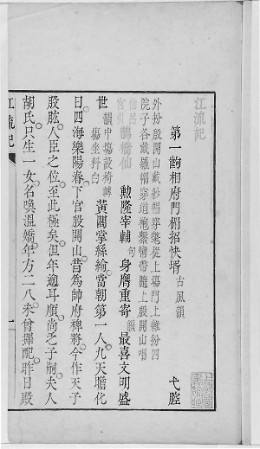 江流記
第一齣相府門楣招快壻 古風韻 弋腔
外扮殷開山戴紗帽穿蟒從上場門上雜扮四
院子各戴羅帽穿道袍繫帶隨上殷開山唱
鵲橋仙 勳隆宰輔 句 身膺重寄 韻 最喜文明盛
世 韻 中場設椅 坐科白 黃閣掌絲綸當朝第一人九天瞻化
日四海樂陽春下官殷開山昔為帥府裨將今作天子
股肱人臣之位至此極矣但年邁耳順尚乏子嗣夫人
胡氏只生一女名喚溫嬌年方二八未曾擇配昨日殿
江流記